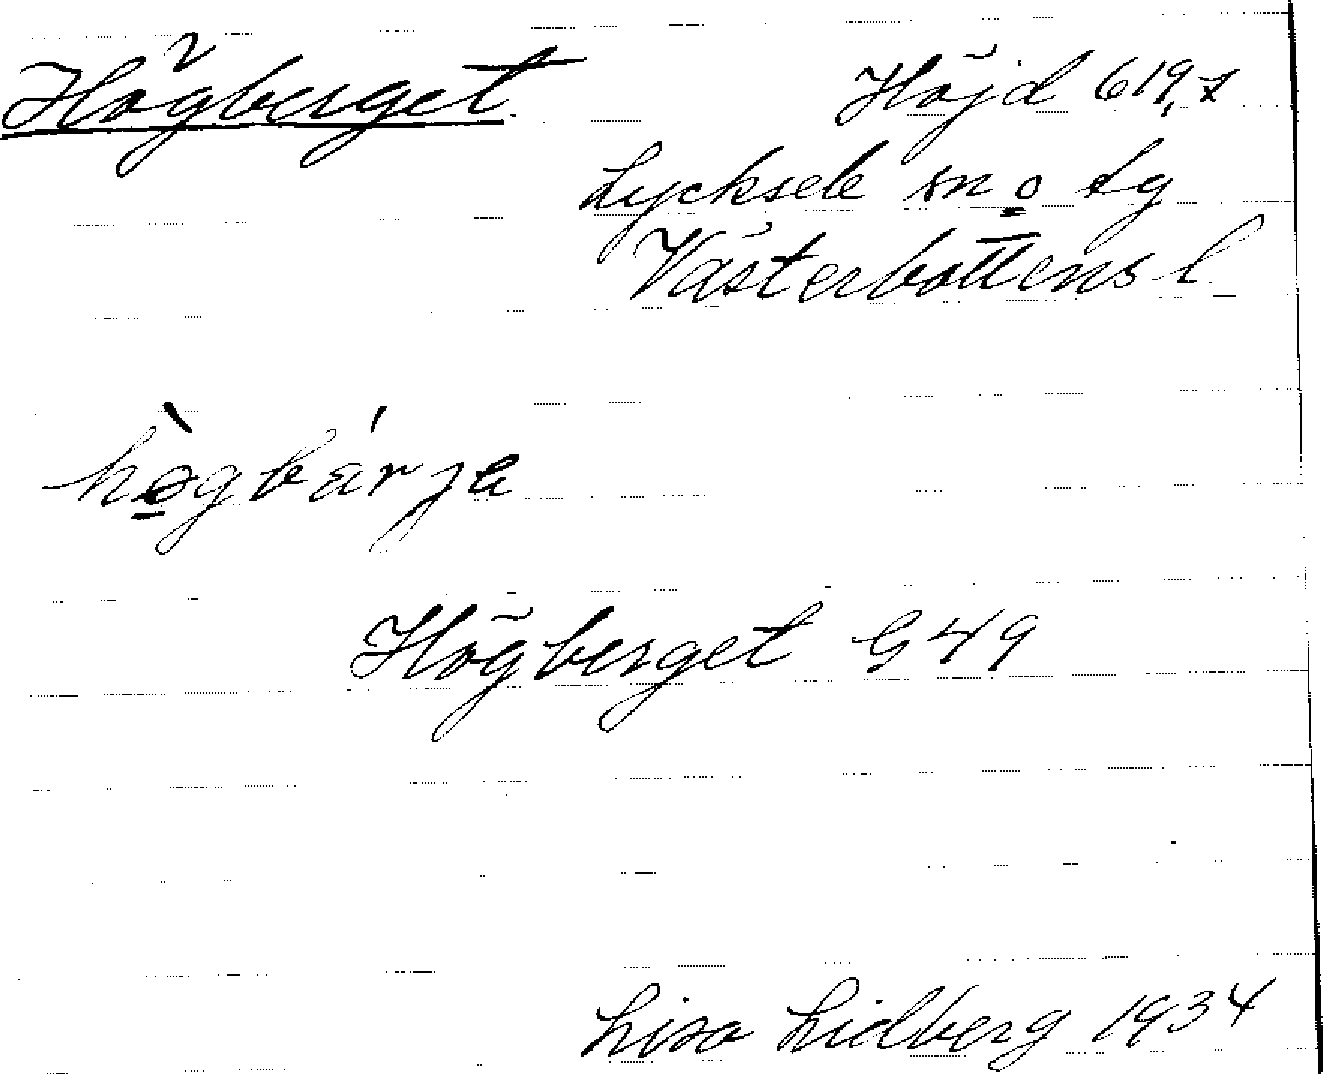 Högberget Höjd 619,7
Lycksele sn o tg
Västerbottens l
Högberget G49
Lisa Lidberg 1934